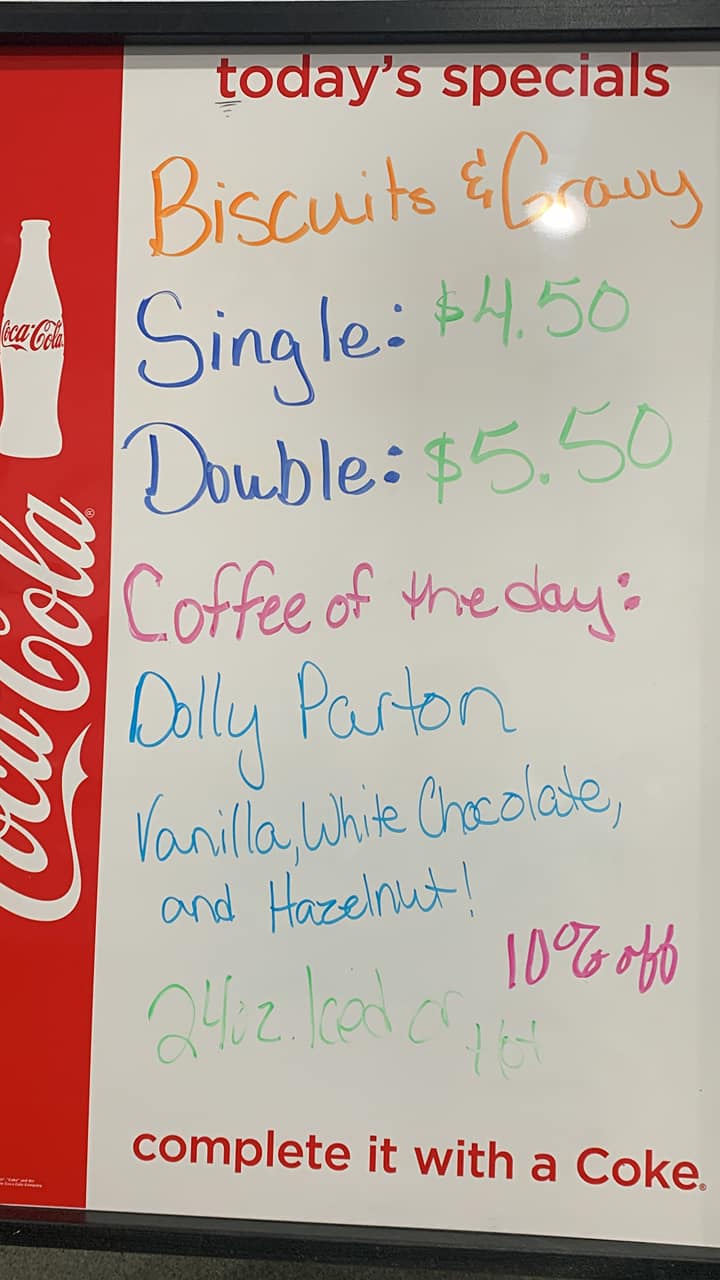 today's specials
Biscuits & Gravy
Single: $4.50
Double: $5.50
Coffee of the day:
Dolly Parton
Vanilla, White Chocolate,
and Hazelnut!
10% off
24oz. Iced or Hot
complete it with a Coke®
Coca-Cola
Coca-Cola®